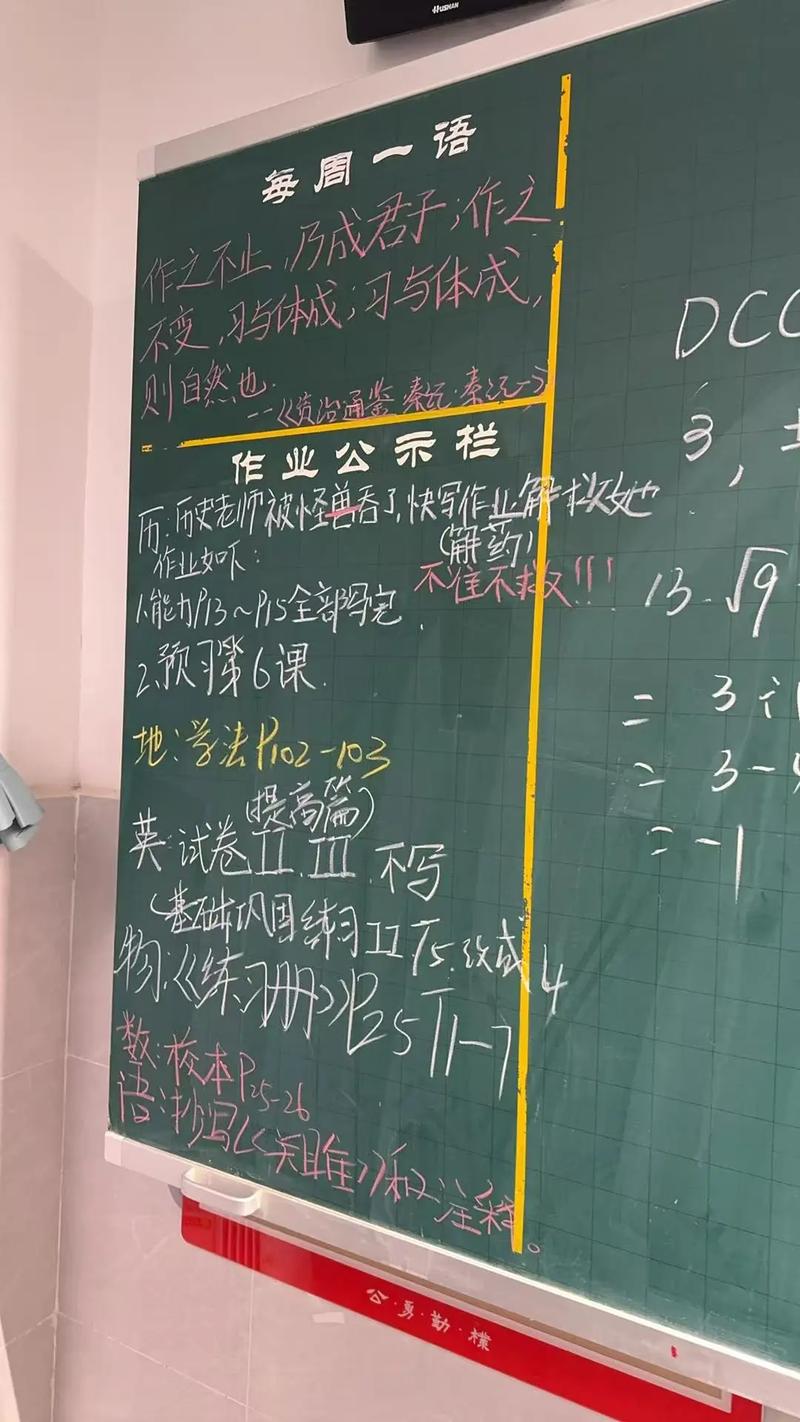 HUSHAN
每周一语
作之不止，乃成君子；作之
不变，习与体成；习与体成，
则自然也.
--《资治通鉴 秦纪·秦纪一》
作业公示栏
历：历史老师被怪兽吞了,快写作业解救她
(解药)
作业如下：
不准不救!!!
1.能力P13~P15全部写完
2.预习第6课.
地：学法P102-103
(提高篇)
英：试卷II.III.不写
(基础巩固练习II T5.改成4
物：《练习册》P25 T1-7
数：校本P25-26
语：抄写《关雎》和注释。
DCC
3,
13.√9
= 3
= 3-
= -1
公·勇·勤·朴